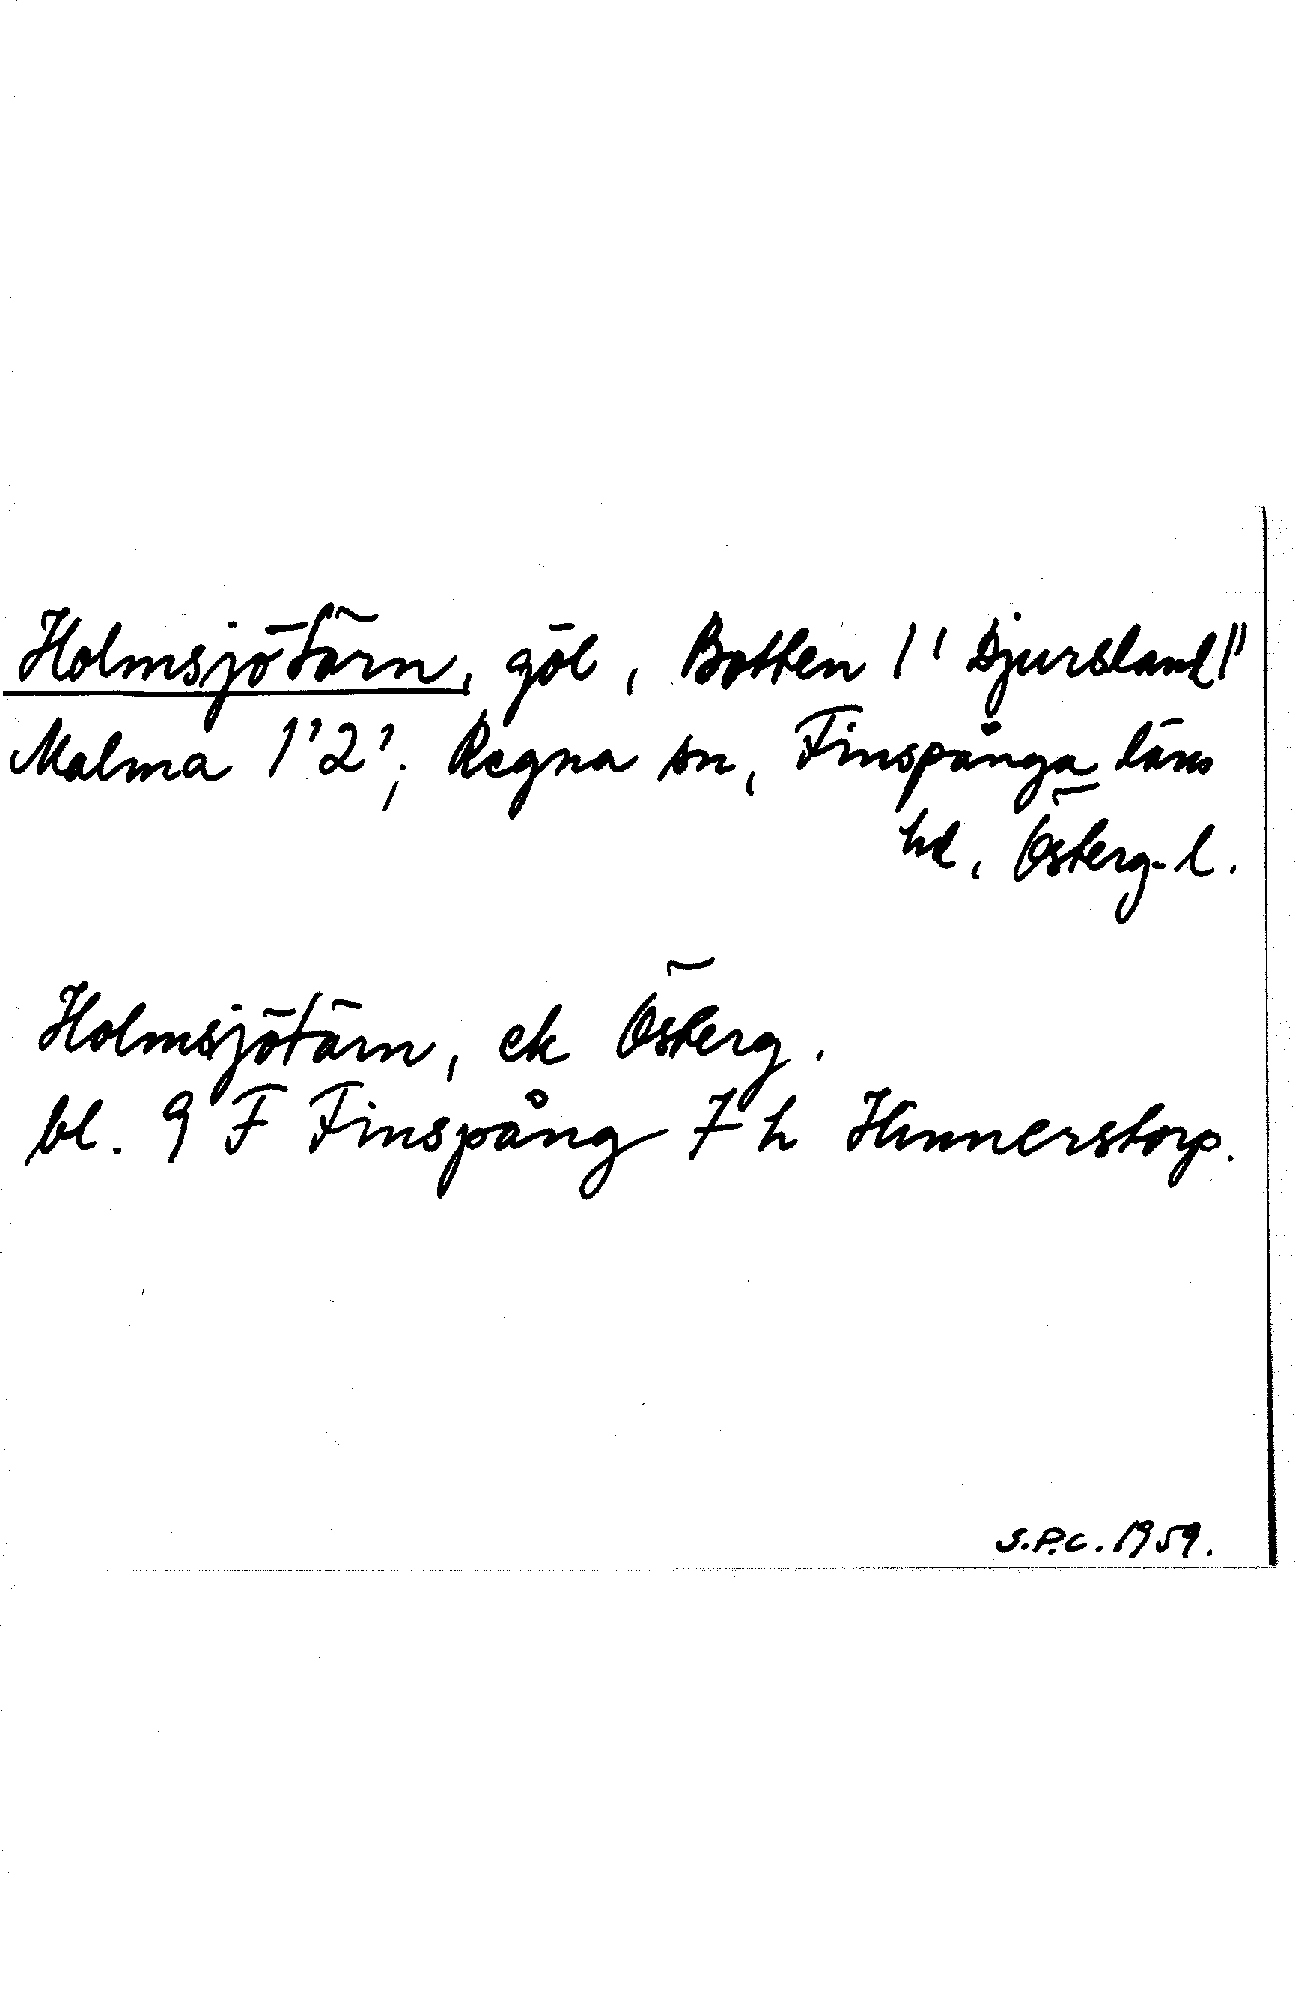 Holmsjötärn, göl, Botten 1' Djursland 1"
Malma 1'2'; Regna sn, Finspånga läns
hd, Österg. l.
Holmsjötärn, ek Österg.
bl. 9 F Finspång 7 h Hunnerstorp.
S.P.C. 1959.